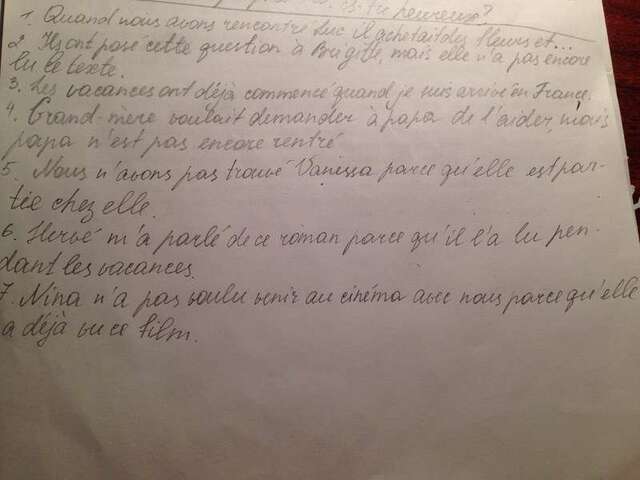 es-tu paresseuse?
1. Quand nous avons rencontré Luc il achetait des fleurs et...
2. Ils ont posé cette question à Brigitte, mais elle n'a pas encore
lu le texte.
3. Les vacances ont déjà commencé quand je suis arrivé en France.
4. Grand-mère voulait demander à papa de l'aider, mais
papa n'est pas encore rentré
5. Nous n'avons pas trouvé Vanessa parce qu'elle est par-
tée chez elle.
6. Hervé m'a parlé de ce roman parce qu'il l'a lu pen-
dant les vacances.
7. Nina n'a pas voulu venir au cinéma avec nous parce qu'elle
a déjà vu ce film.